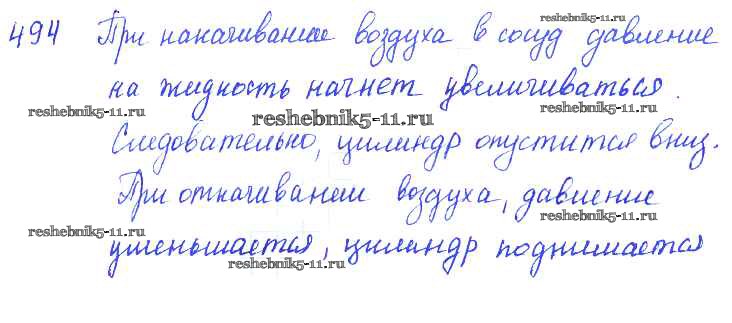 494 При накачивании воздуха в сосуд давление
на жидкость начнет увеличиваться.
Следовательно, цилиндр опустится вниз.
При откачивании воздуха, давление
уменьшается, цилиндр поднимается
reshebnik5-11.ru
reshebnik5-11.ru
reshebnik5-11.ru
reshebnik5-11.ru
reshebnik5-11.ru
reshebnik5-11.ru
reshebnik5-11.ru